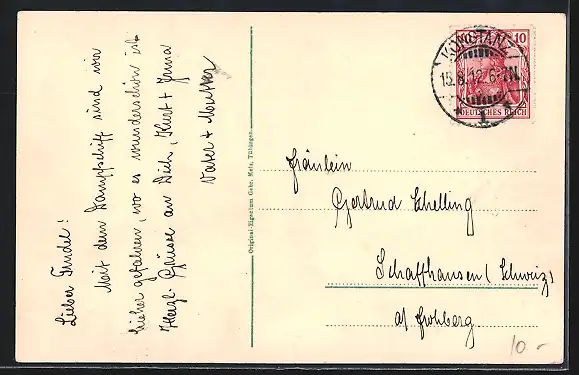 Lieber Trudel!
Mit dem Dampfschiff sind wir
hieher gefahren, wo es wunderschön ist.
Herzl. Grüsse an Dich, Kurt + Jenna
Vater + Mutter
Original-Eigentum Gebr. Metz, Tübingen
KONSTANZ
15.8.12.6-7N
* 1 *
10
DEUTSCHES REICH
Fräulein
Gertrud Schelling
Schaffhausen (Schweiz)
a/ Frohberg.
10.-